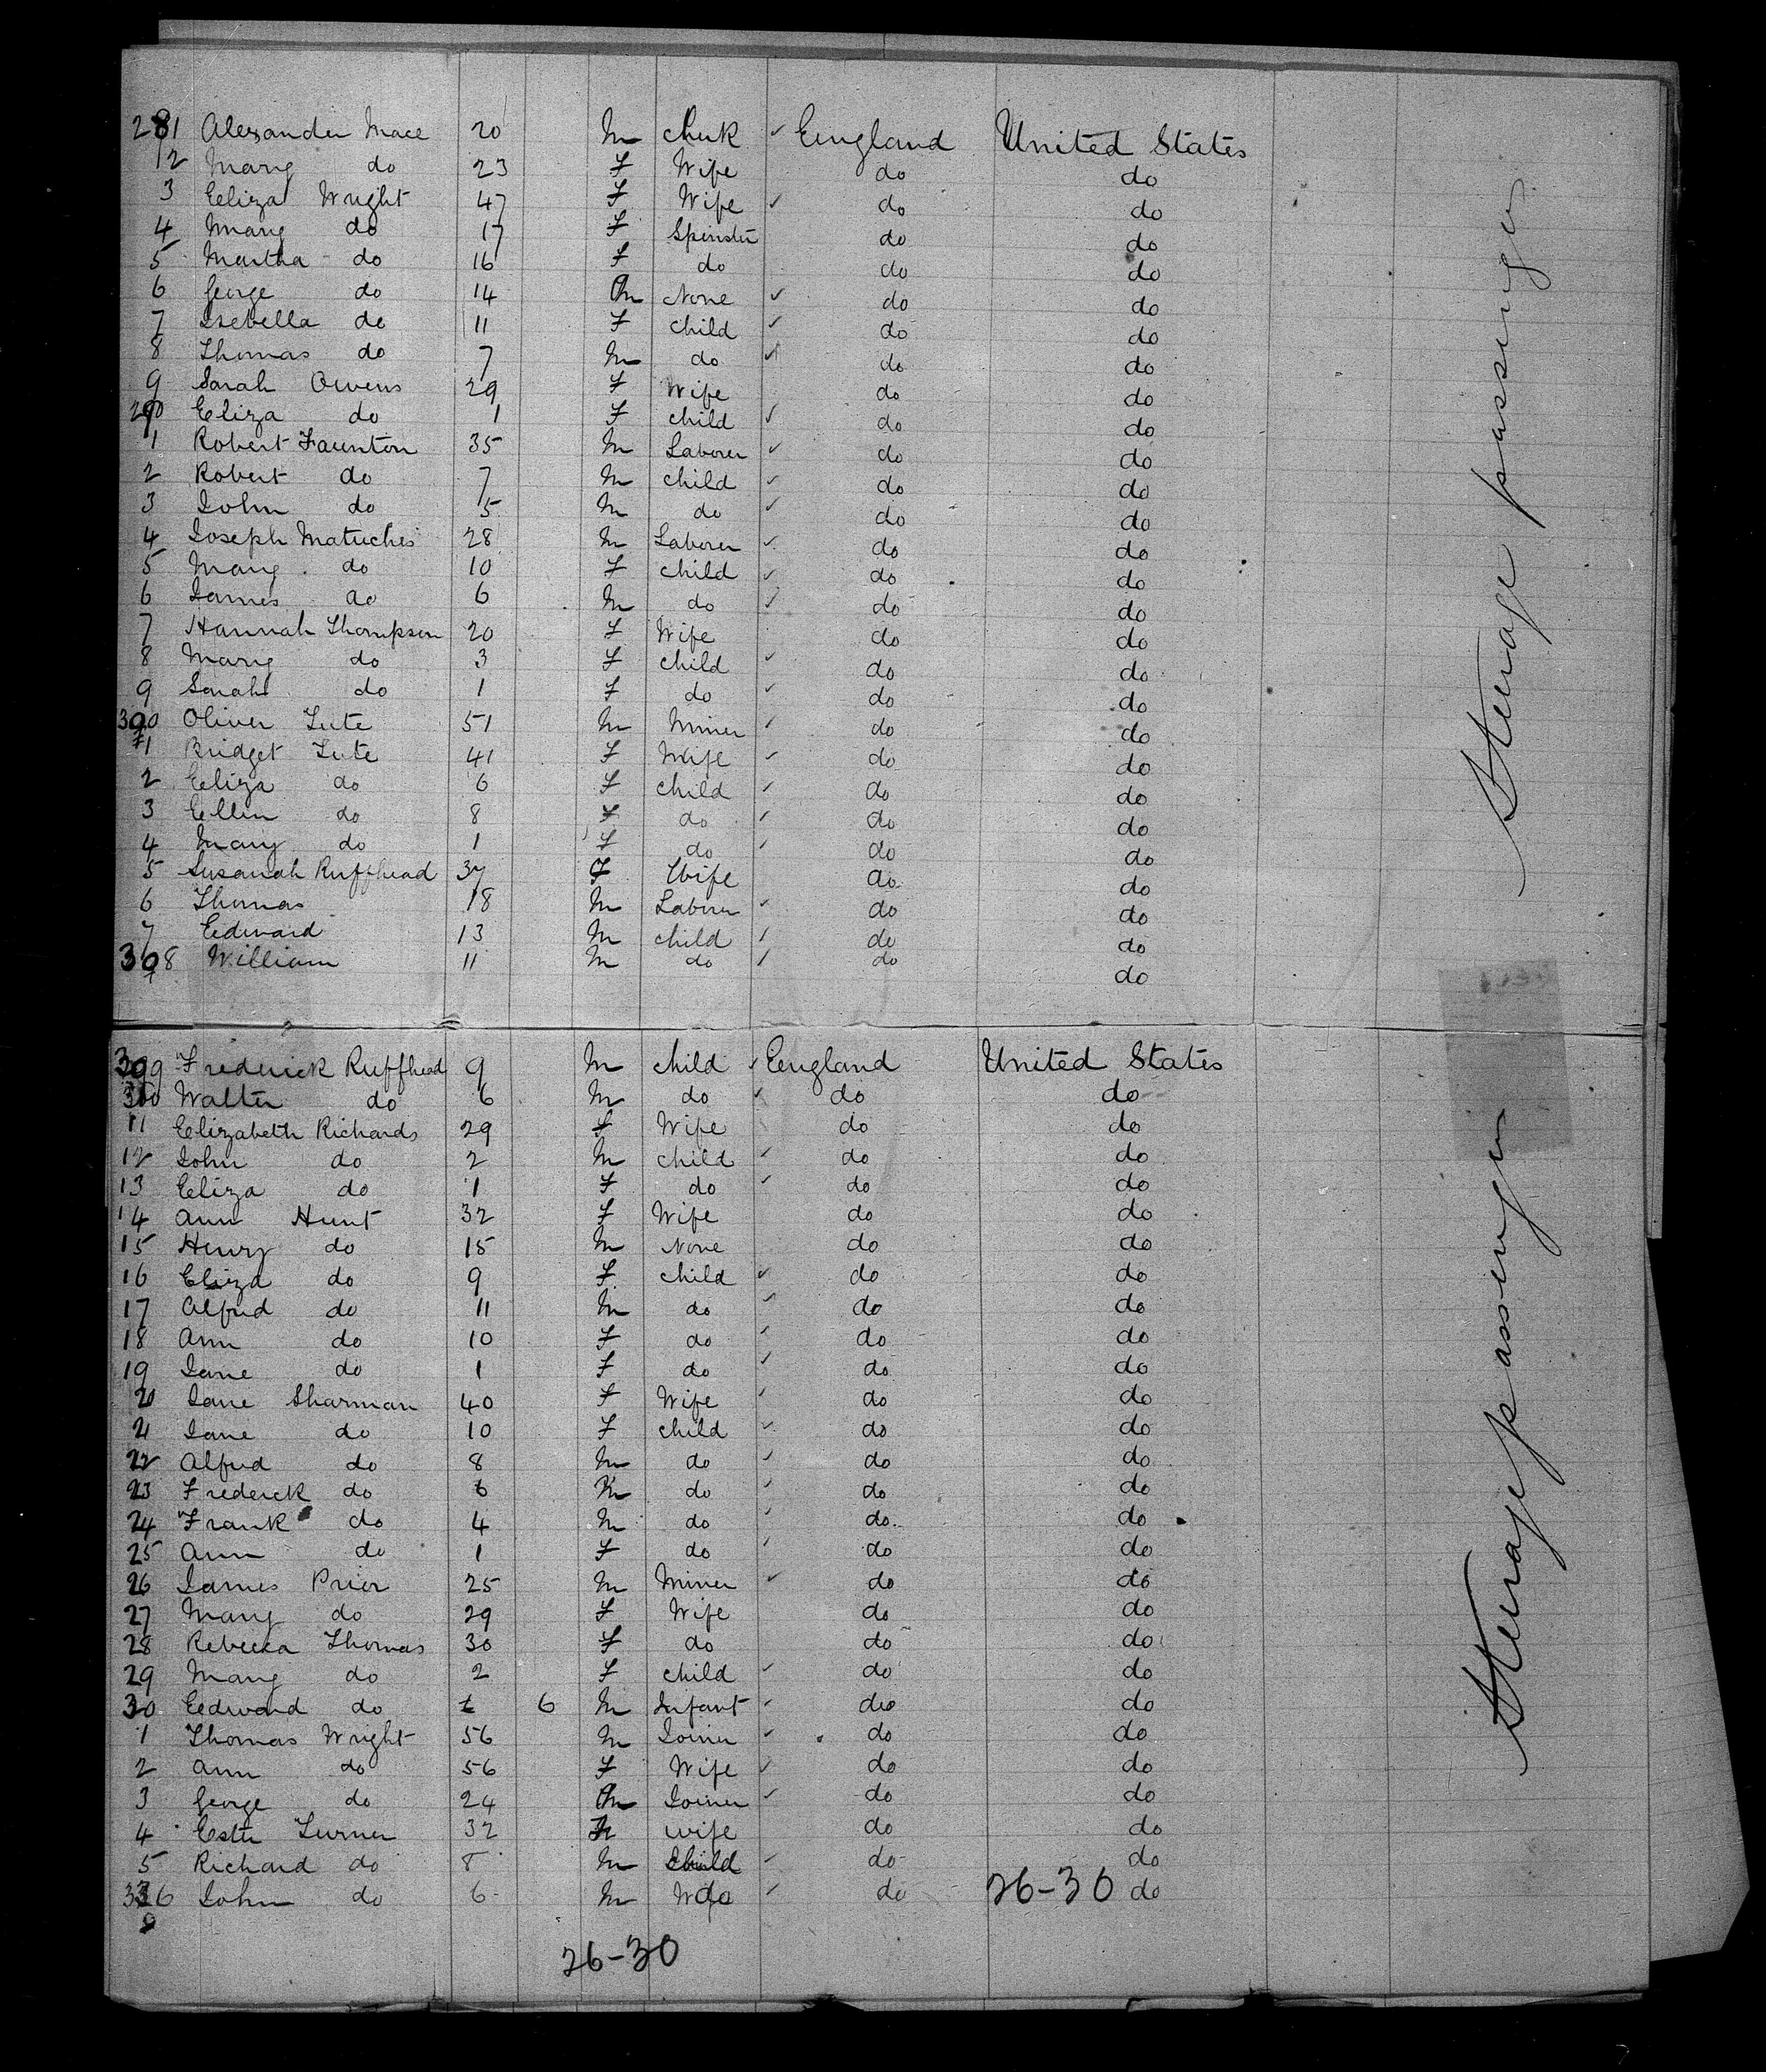 281 Alexander Mace 20 M Clerk England United States
12 Mary do 23 F Wife do do
3 Eliza Wright 47 F Wife do do
4 Mary do 17 F Spinster do do
5 Martha do 16 F do do do
6 George do 14 M None do do
7 Isebella do 11 F child do do
8 Thomas do 7 M do do do
9 Sarah Owens 29 F Wife do do
290 Eliza do 1 F child do do
1 Robert Faunton 35 M Laborer do do
2 Robert do 7 M child do do
3 John do 5 M do do do
4 Joseph 28 M Laborer do do
5 Mary do 10 F child do do
6 James do 6 M do do do
7 Hannah Thompson 20 F Wife do do
8 Mary do 3 F child do do
9 Sarah do 1 F do do do
Oliver Lute 51 M Miner do do
1 Bridget Lute 41 F Wife do do
2 Eliza do 6 F child do do
3 Ellen do 8 F do do do
4 Mary do 1 F do do do
5 Susanah Ruffhead 37 F Wife do do
6 Thomas 18 M Laborer do do
7 Edward 13 M child do do
308 William 11 M do do do
Steerage passenger
Frederick Ruffhead 9 M child England United States
Walter do 6 M do do do
11 Elizabeth Richards 29 F Wife do do
12 John do 2 M child do do
13 Eliza do 1 F do do do
14 Ann Hunt 32 F Wife do do
15 Henry do 15 M None do do
16 Eliza do 9 F child do do
17 Alfred do 11 M do do do
18 Ann do 10 F do do do
19 Jane do 1 F do do do
20 Jane Sharman 40 F Wife do do
21 Jane do 10 F child do do
22 Alfred do 8 M do do do
23 Frederick do 6 M do do do
24 Frank do 4 M do do do
25 Ann do 1 F do do do
26 James Prier 25 M Miner do do
27 Mary do 29 F Wife do do
28 Rebecca Thomas 30 F do do do
29 Mary do 2 F child do do
30 Edward do 6 M Infant do do
1 Thomas Wright 56 M Joiner do do
2 Ann do 56 F Wife do do
3 George do 24 M Joiner do do
4 Ester Turner 32 F wife do do
5 Richard do 8 M Child do do
336 John do 6 M do do 26-30 do
26-30
Steerage passenger